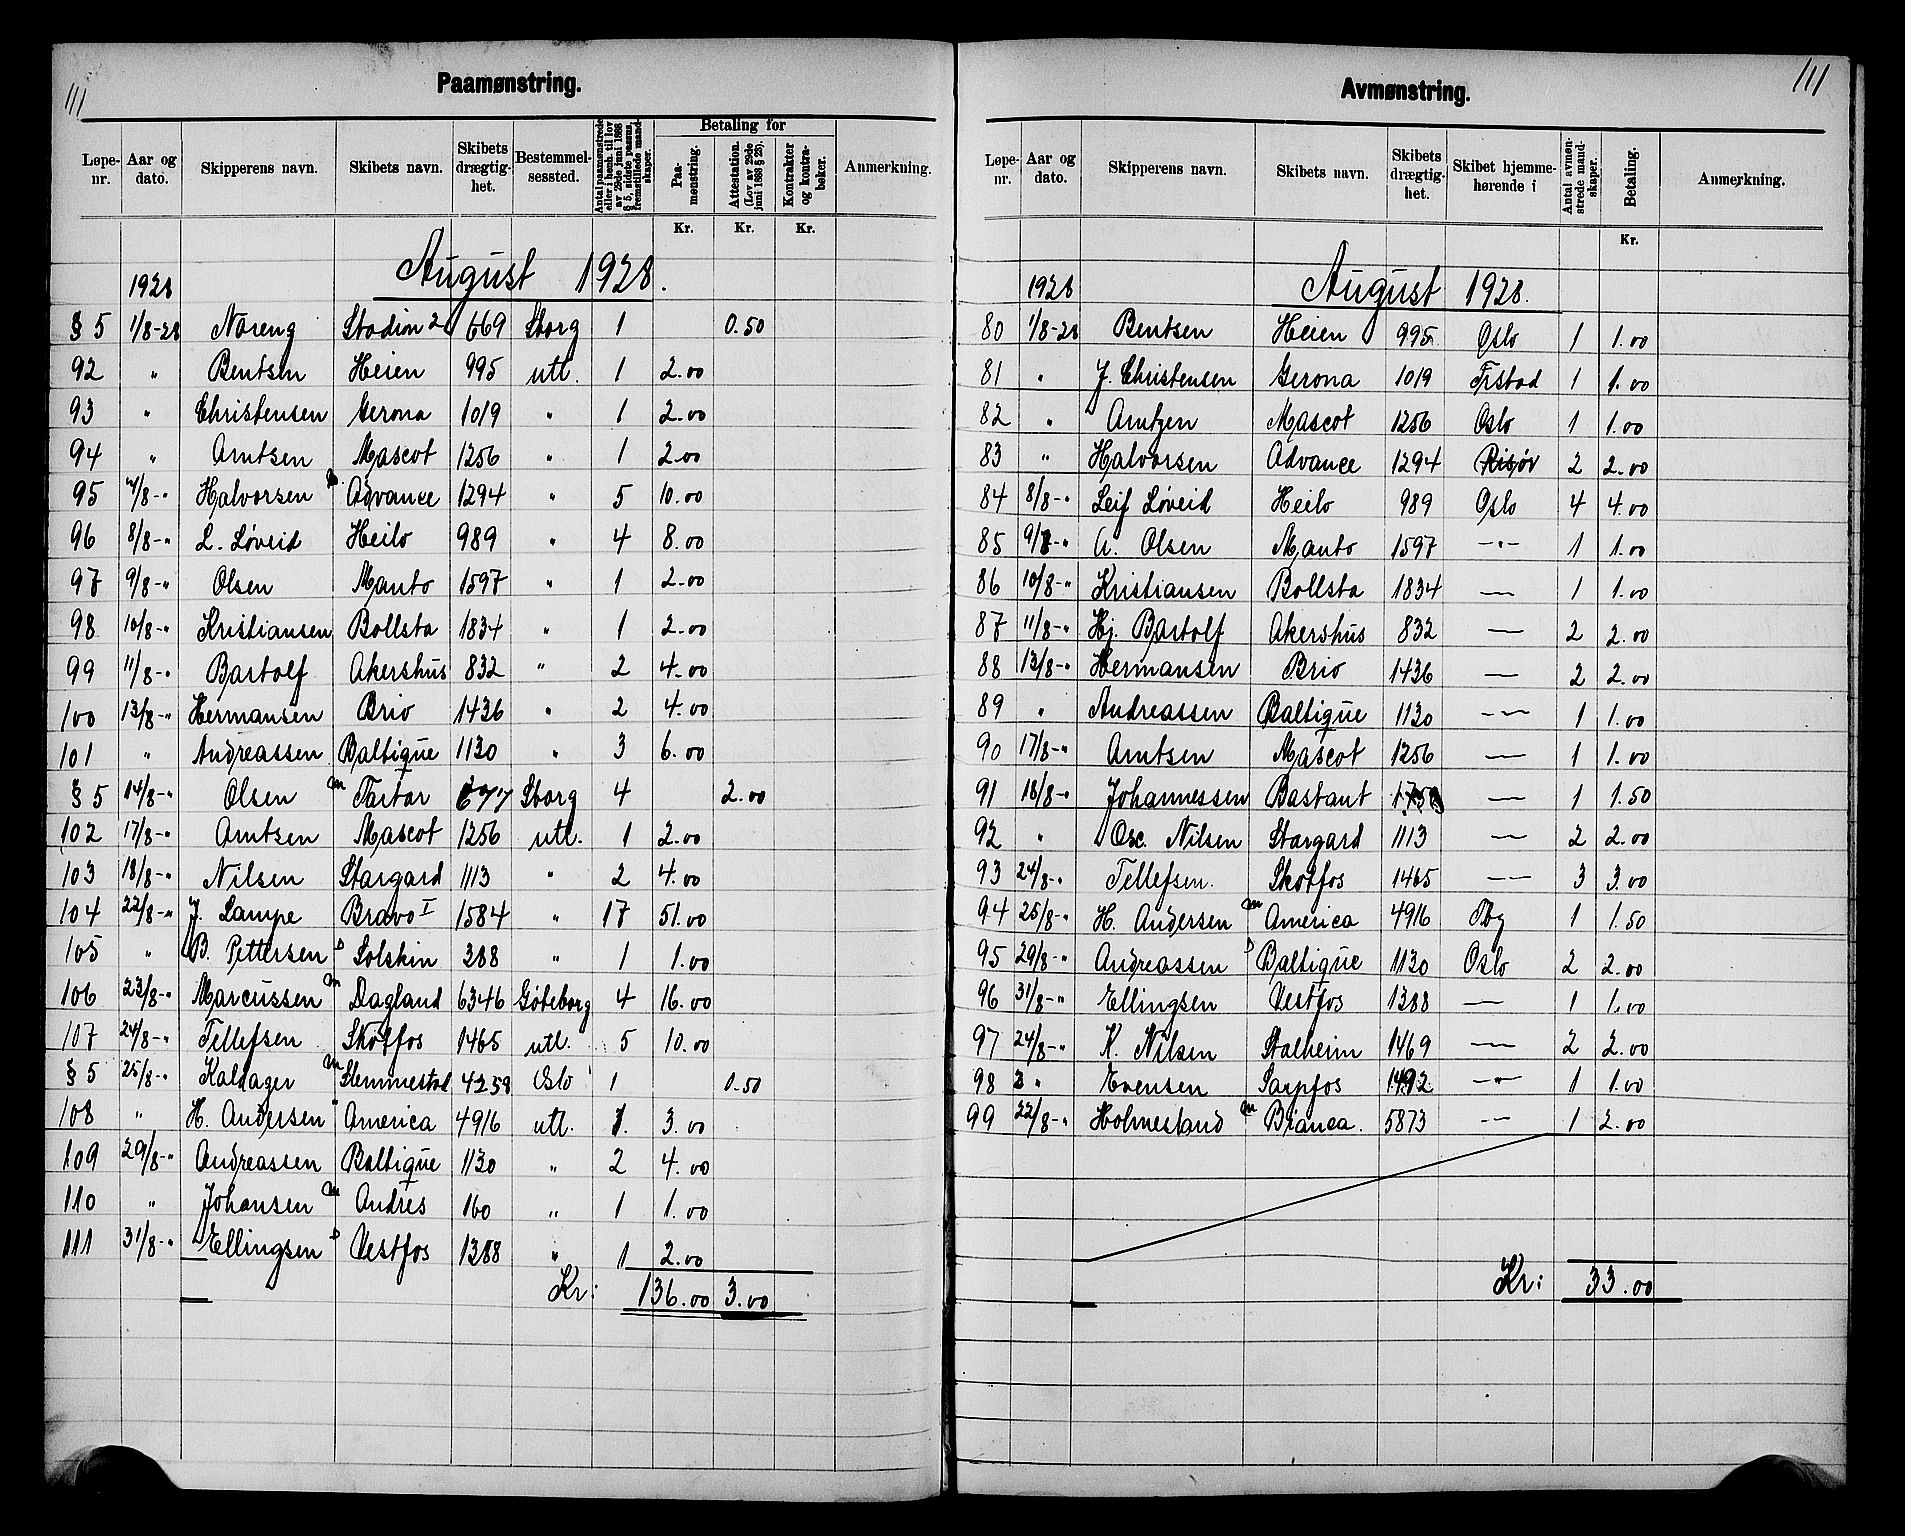 111
Paamønstring.
Løpe-nr. Aar og dato. Skipperens navn. Skibets navn. Skibets drægtig-het. Bestemmel-sessted. Antal paamønstrede eller i henh. til lov av 29de juni 1888 § 5, sidste passus, fremstillede mand-skaper. Betaling for Paa-mønstring. Attestation. (Lov av 29de juni 1888 § 25). Kontrakter og kontra-bøker. Anmerkning.
Kr. Kr. Kr.
1928 August 1928.
§ 5 1/8-28 Noreng Stadion 2 669 Sborg 1 0.50
92 " Bentsen Heien 995 utl. 1 2.00
93 " Christensen Gerona 1019 " 1 2.00
94 " Arntsen Mascot 1256 " 1 2.00
95 7/8-" Halvorsen D Advance 1294 " 5 10.00
96 8/8-" L. Løveid Heilo 989 " 4 8.00
97 9/8-" Olsen Manto 1597 " 1 2.00
98 10/8-" Kristiansen Bollsta 1834 " 1 2.00
99 11/8-" Bastolf Akershus 832 " 2 4.00
100 13/8-" Hermansen Brio 1436 " 2 4.00
101 " Andreassen Baltique 1130 " 3 6.00
§ 5 14/8-" Olsen m Tartar 677 Sborg 4 2.00
102 17/8-" Arntsen Mascot 1256 utl. 1 2.00
103 18/8-" Nilsen Stargard 1113 " 2 4.00
104 22/8-" J. Lampe Bravo I 1584 " 17 51.00
105 " B. Pettersen D Solskin 388 " 1 1.00
106 23/8-" Marcussen m Dagland 6346 Göteborg 4 16.00
107 24/8-" Tellefsen Skotfos 1465 utl. 5 10.00
§ 5 25/8-" Kaldager m Slemmestad 4259 Oslo 1 0.50
108 " H. Andersen " America 4916 utl. 1. 3.00
109 29/8-" Andreassen Baltique 1130 " 2 4.00
110 " Johansen m Andres 160 " 1 1.00
111 31/8-" Ellingsen D Vestfos 1388 " 1 2.00
Kr: 136.00 3.00
111
Avmønstring.
Løpe-nr. Aar og dato. Skipperens navn. Skibets navn. Skibets drægtig-het. Skibet hjemme-hørende i Antal avmøn-strede mand-skaper. Betaling. Anmerkning.
Kr.
1928 August 1928.
80 1/8-28 Bentsen Heien 995 Oslo 1 1.00
81 " J. Christensen Gerona 1019 Fr.stad 1 1.00
82 " Arntzen Mascot 1256 Oslo 1 1.00
83 " Halvorsen Advance 1294 Risør 2 2.00
84 8/8-" Leif Løveid Heilo 989 Oslo 4 4.00
85 9/8-" A. Olsen Manto 1597 -"- 1 1.00
86 10/8-" Kristiansen Bollsta 1834 — 1 1.00
87 11/8-" Hj. Bastolf Akershus 832 — 2 2.00
88 13/8-" Hermansen Brio 1436 — 2 2.00
89 " Andreassen Baltique 1130 — 1 1.00
90 17/8-" Arntsen Mascot 1256 — 1 1.00
91 18/8-" Johannessen Bastant — 1 1.50
92 " Osc. Nilsen Stargard 1113 — 2 2.00
93 24/8-" Tellefsen. Skotfos 1465 — 3 3.00
94 25/8-" H. Andersen m America 4916 Tbg 1 1.50
95 29/8-" Andreassen D Baltique 1130 Oslo 2 2.00
96 31/8-" Ellingsen Vestfos 1388 — 1 1.00
97 24/8-" K. Nilsen Stalheim 1469 — 2 2.00
98 " Evensen Sarpfos 1492 -"- 1 1.00
99 22/8-" Holmesland m Bianca. 5873 — 1 2.00
Kr: 33.00